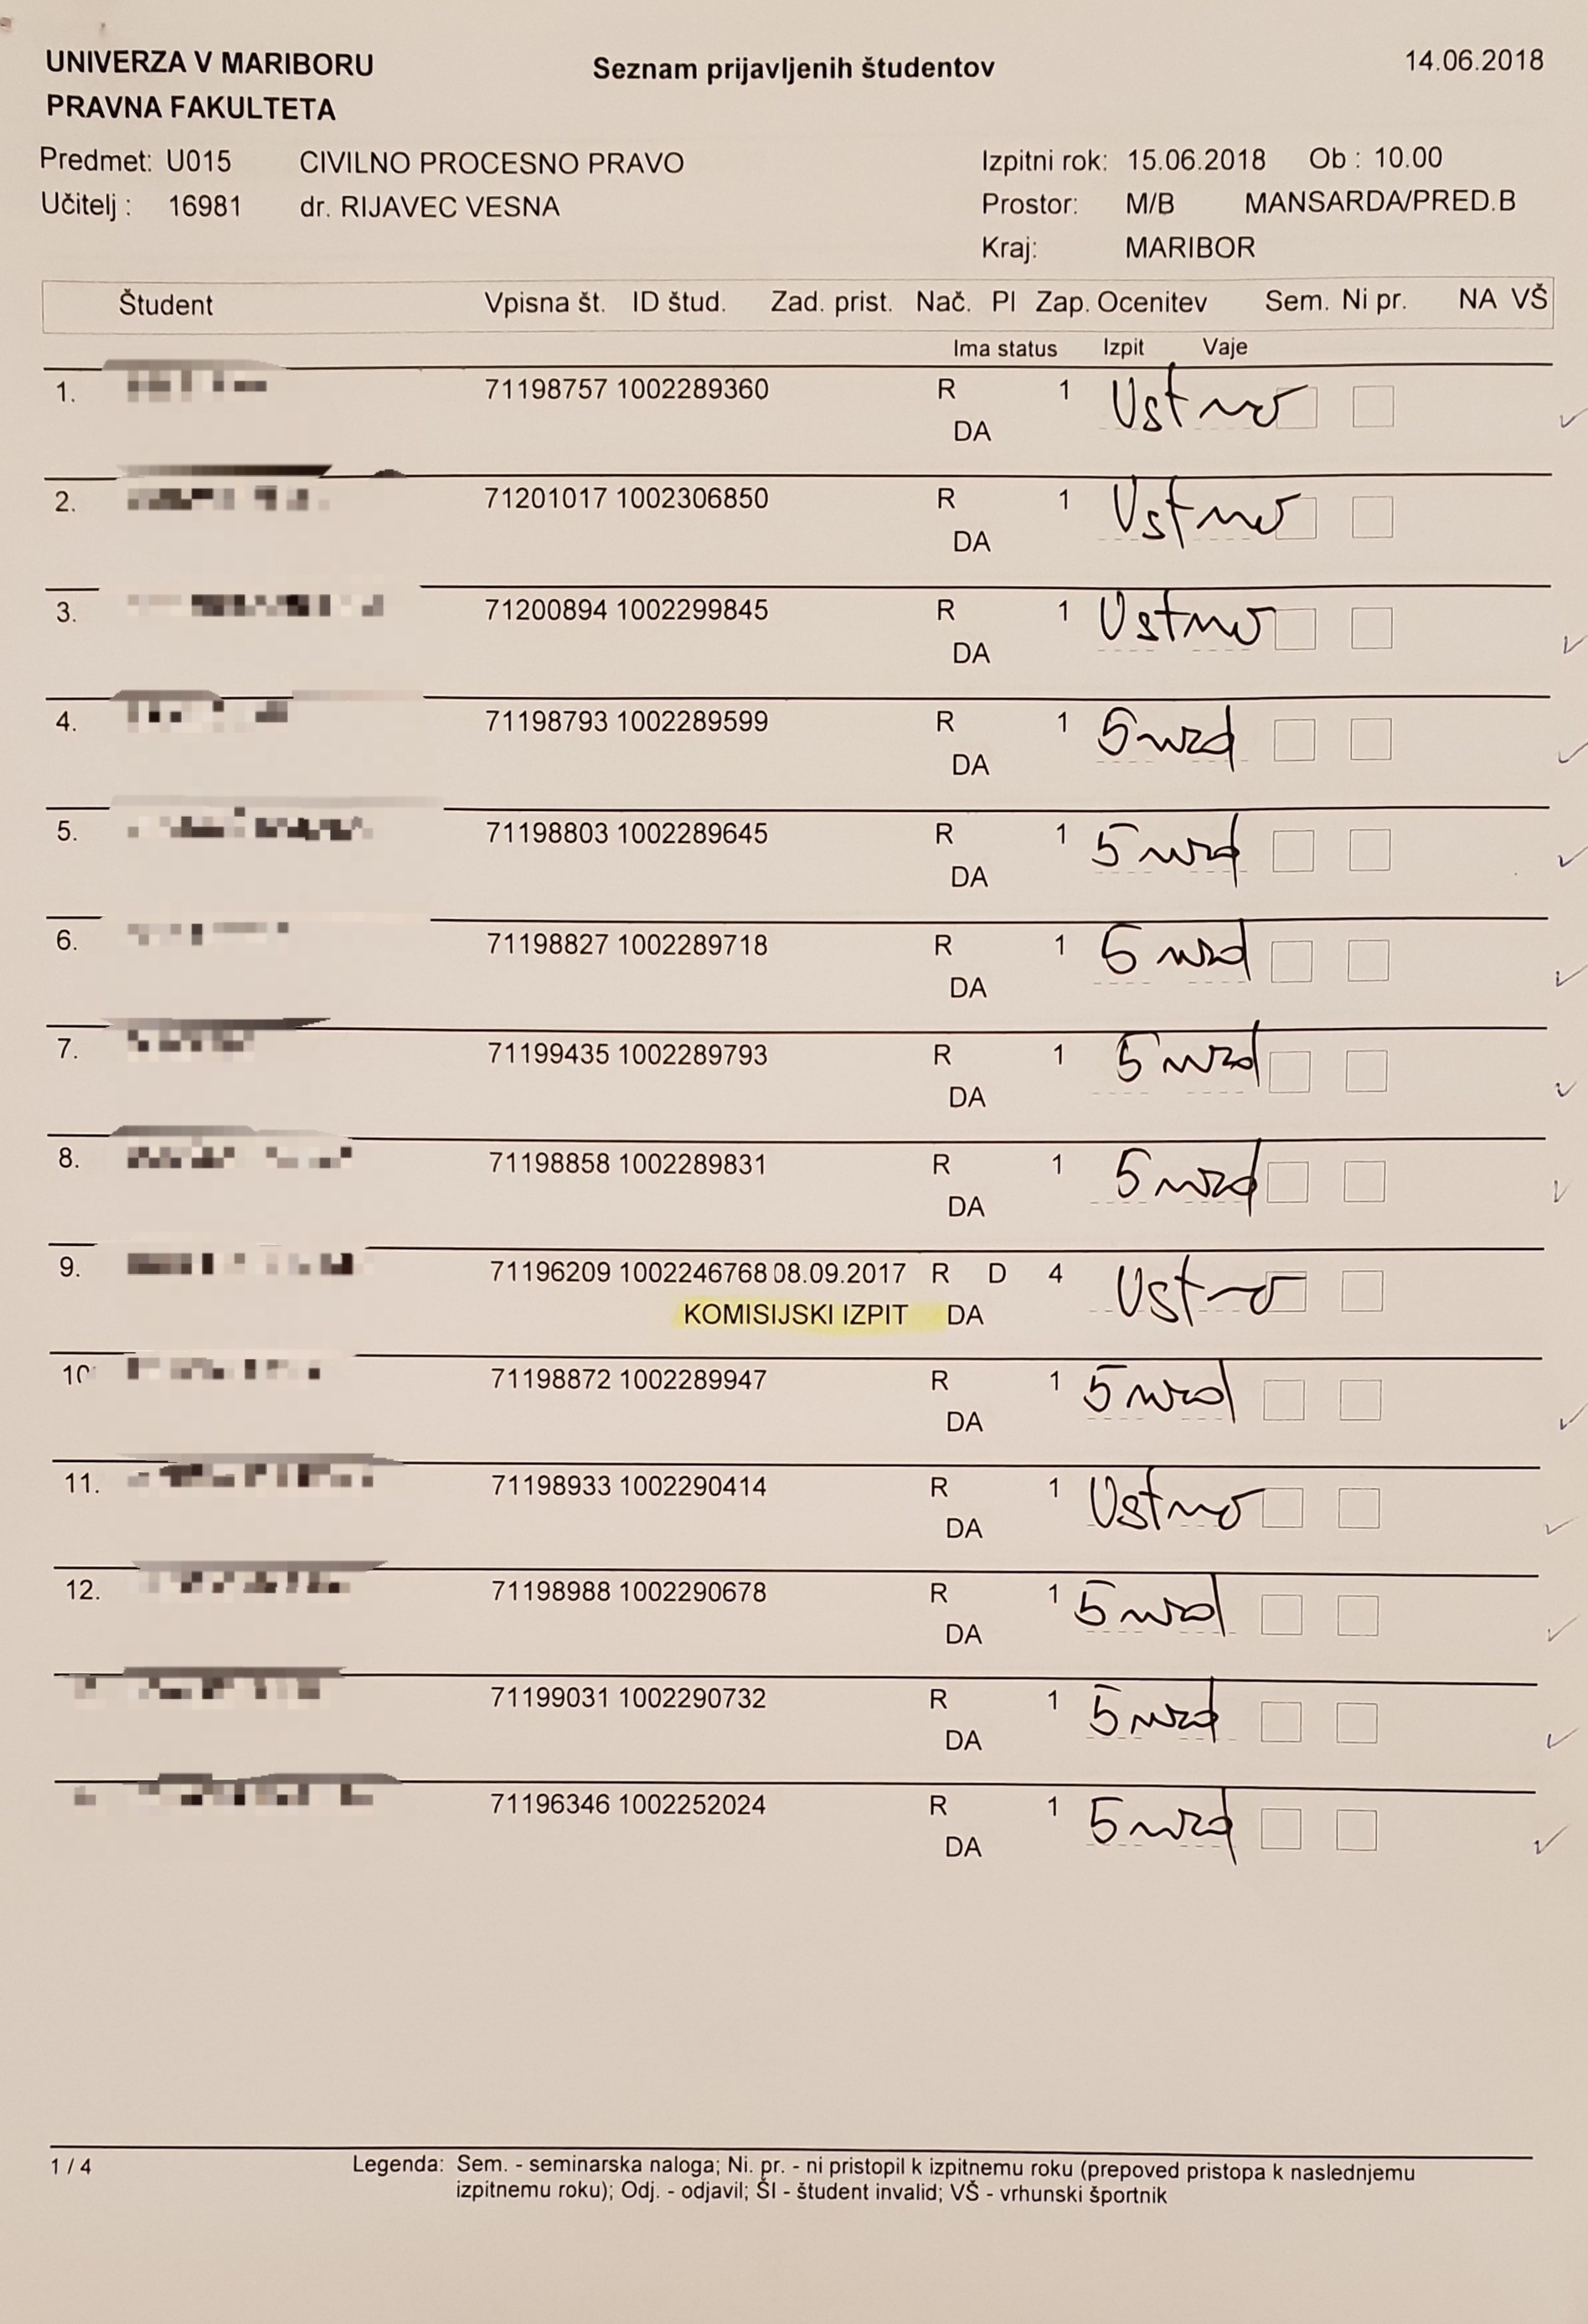 UNIVERZA V MARIBORU Seznam prijavljenih študentov 14.06.2018
PRAVNA FAKULTETA
Predmet: U015 CIVILNO PROCESNO PRAVO Izpitni rok: 15.06.2018 Ob : 10.00
Učitelj : 16981 dr. RIJAVEC VESNA Prostor: M/B MANSARDA/PRED.B
Kraj: MARIBOR
Študent Vpisna št. ID štud. Zad. prist. Nač. Pl Zap. Ocenitev Sem. Ni pr. NA VŠ
Ima status Izpit Vaje
1. 71198757 1002289360 R 1 Ustno
DA
2. 71201017 1002306850 R 1 Ustno
DA
3. 71200894 1002299845 R 1 Ustno
DA
4. 71198793 1002289599 R 1 5 nzd
DA
5. 71198803 1002289645 R 1 5 nzd
DA
6. 71198827 1002289718 R 1 5 nzd
DA
7. 71199435 1002289793 R 1 5 nzd
DA
8. 71198858 1002289831 R 1 5 nzd
DA
9. 71196209 1002246768 08.09.2017 R D 4 Ustno
KOMISIJSKI IZPIT DA
10 71198872 1002289947 R 1 5 nzd
DA
11. 71198933 1002290414 R 1 Ustno
DA
12. 71198988 1002290678 R 1 5 nzd
DA
71199031 1002290732 R 1 5 nzd
DA
71196346 1002252024 R 1 5 nzd
DA
1 / 4 Legenda: Sem. - seminarska naloga; Ni. pr. - ni pristopil k izpitnemu roku (prepoved pristopa k naslednjemu
izpitnemu roku); Odj. - odjavil; ŠI - študent invalid; VŠ - vrhunski športnik